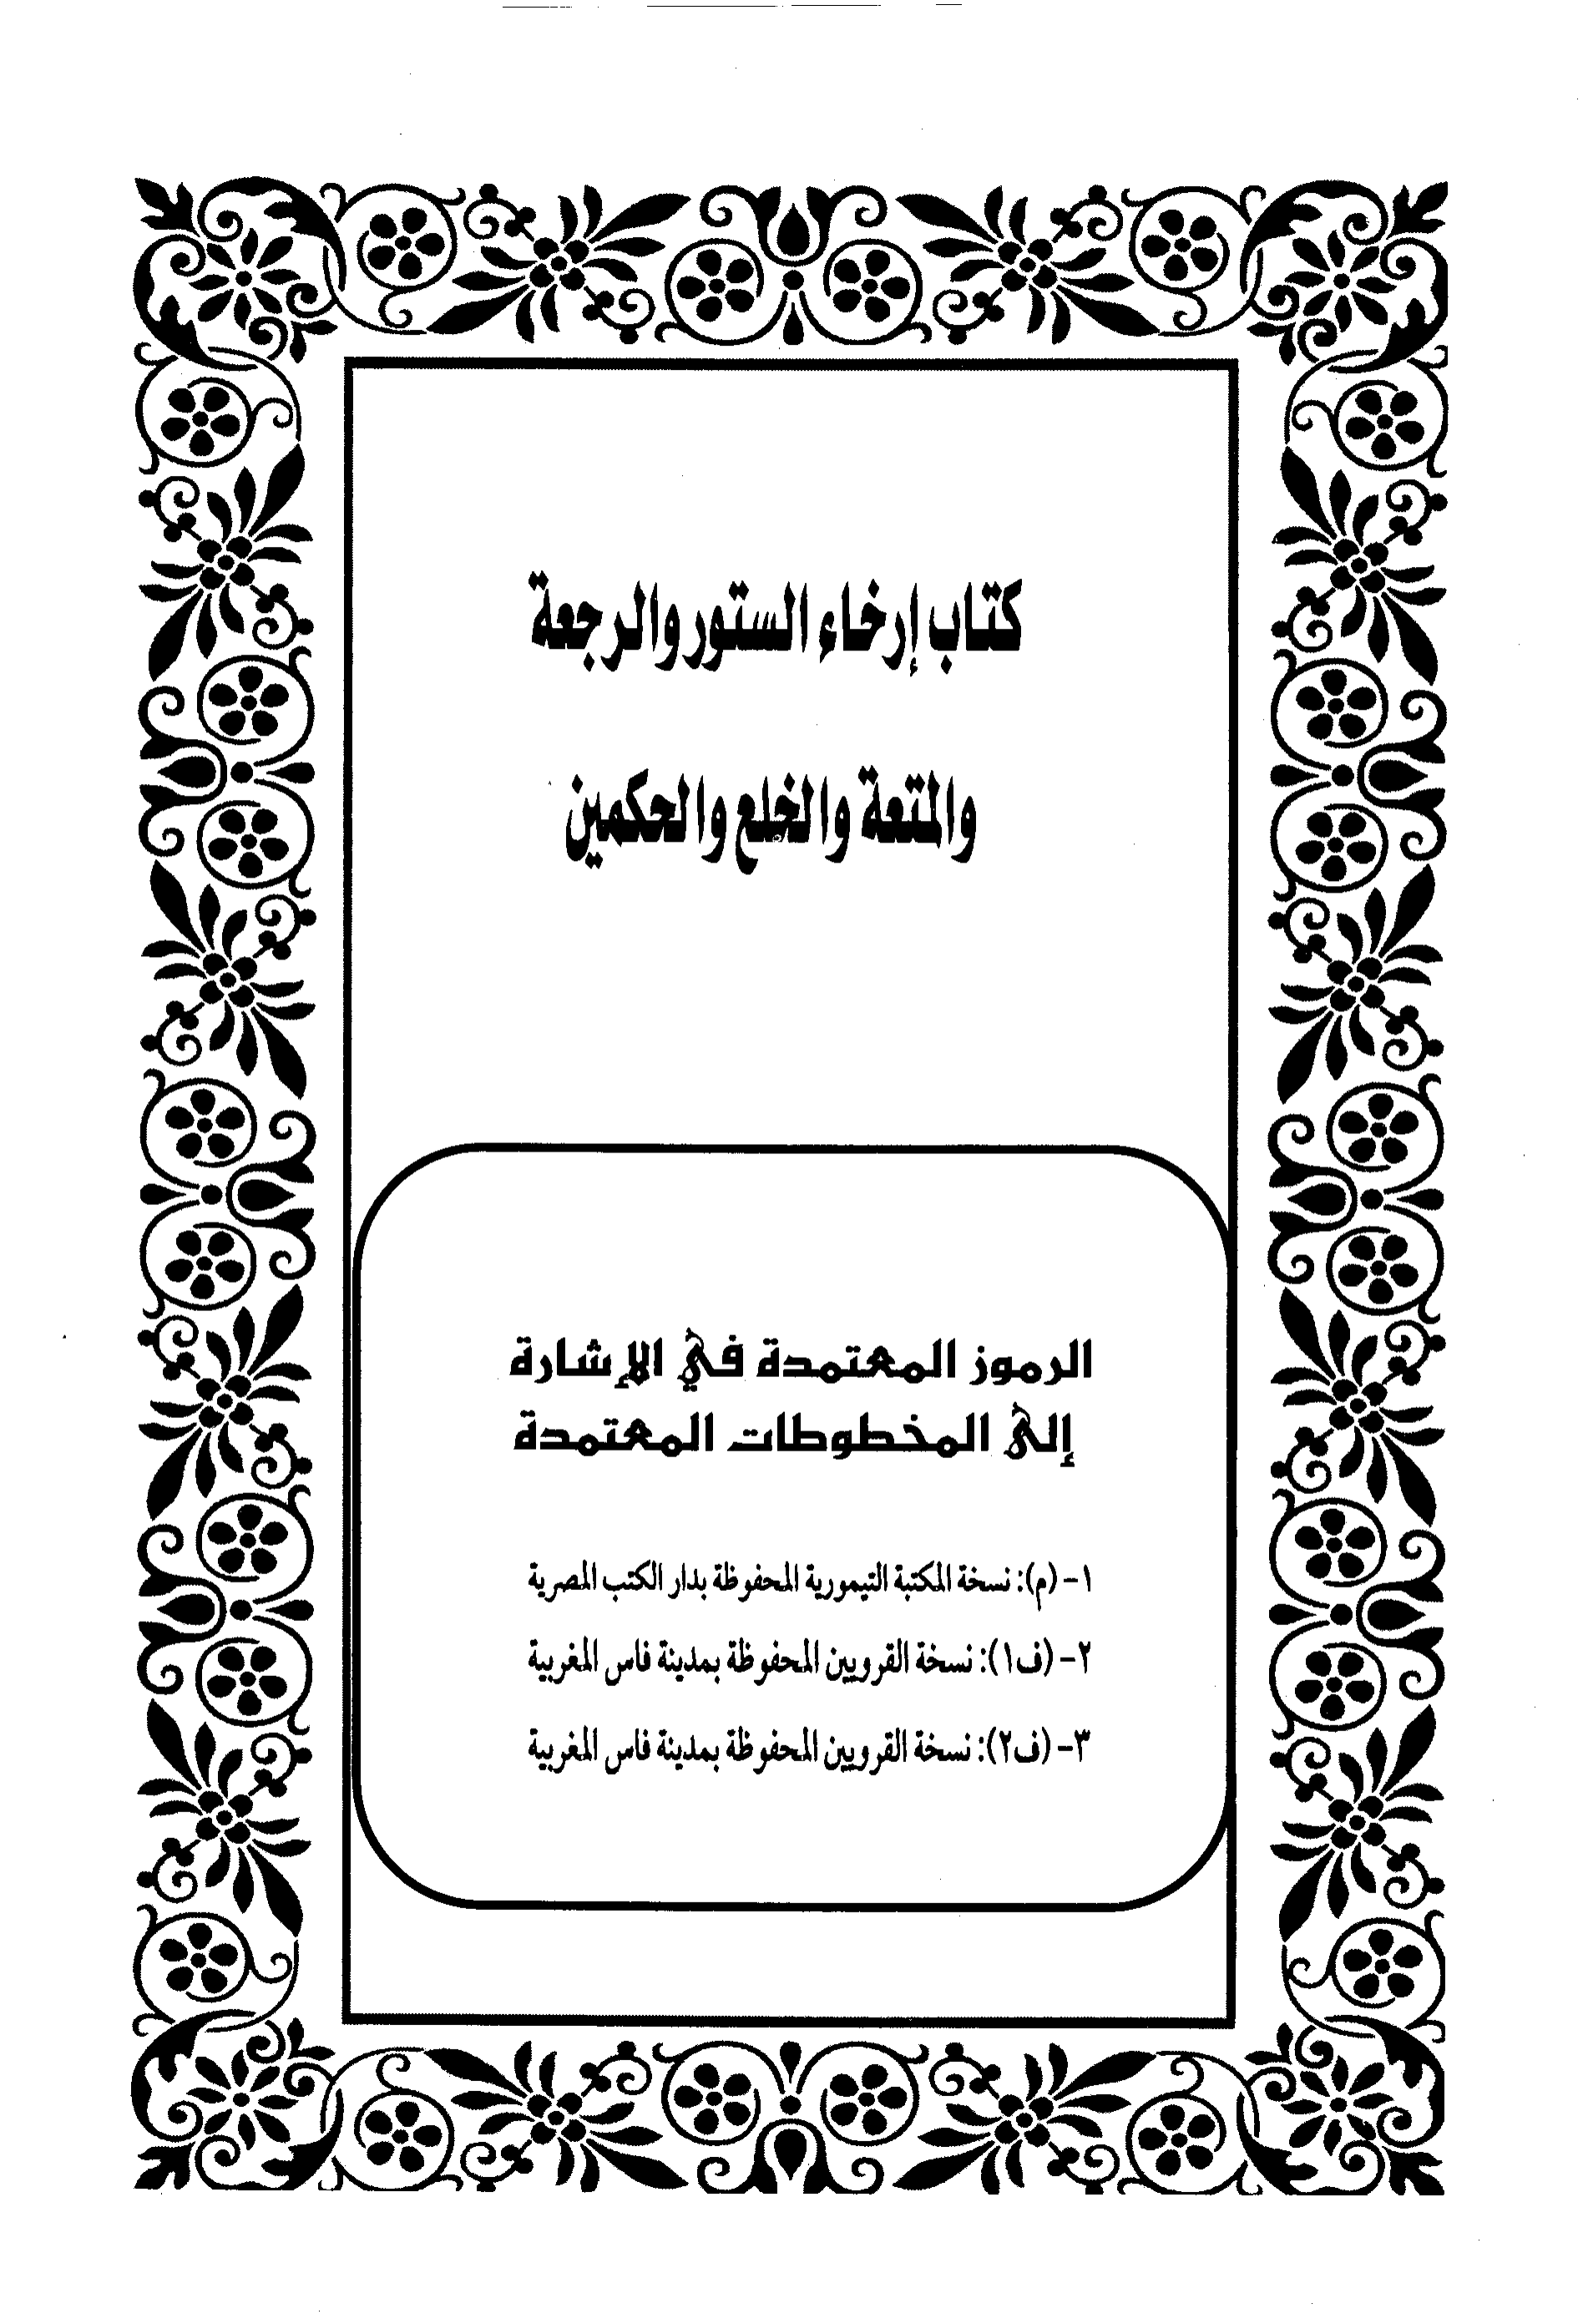 كتاب إرخاء الستور والرجعة
والمتعة والخلع والحكمين
الرموز المعتمدة في الإشارة
إلى المخطوطات المعتمدة
١- (م): نسخة المكتبة التيمورية المحفوظة بدار الكتب المصرية
٢- (ف١): نسخة القرويين المحفوظة بمدينة فاس المغربية
٣- (ف٢): نسخة القرويين المحفوظة بمدينة فاس المغربية